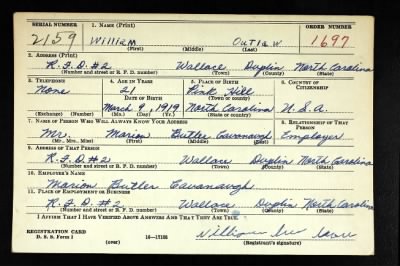 SERIAL NUMBER 1. NAME (Print) ORDER NUMBER
2159 William Outlaw 1697
(First) (Middle) (Last)
2. ADDRESS (Print)
R.F.D. #2 Wallace Duplin North Carolina
(Number and street or R. F. D. number) (Town) (County) (State)
3. TELEPHONE 4. AGE IN YEARS 5. PLACE OF BIRTH 6. COUNTRY OF CITIZENSHIP
None 21 Pink Hill
DATE OF BIRTH (Town or county)
March 9, 1919 North Carolina U.S.A.
(Exchange) (Number) (Mo.) (Day) (Yr.) (State or country)
7. NAME OF PERSON WHO WILL ALWAYS KNOW YOUR ADDRESS 8. RELATIONSHIP OF THAT PERSON
Mr. Marion Butler Cavanaugh Employer
(Mr., Mrs., Miss) (First) (Middle) (Last)
9. ADDRESS OF THAT PERSON
R.F.D. #2 Wallace Duplin North Carolina
(Number and street or R. F. D. number) (Town) (County) (State)
10. EMPLOYER'S NAME
Marion Butler Cavanaugh
11. PLACE OF EMPLOYMENT OR BUSINESS
R.F.D. #2 Wallace Duplin North Carolina
(Number and street or R. F. D. number) (Town) (County) (State)
I AFFIRM THAT I HAVE VERIFIED ABOVE ANSWERS AND THAT THEY ARE TRUE.
REGISTRATION CARD
D. S. S. Form 1 (over) 16—17105 William
(Registrant's signature)